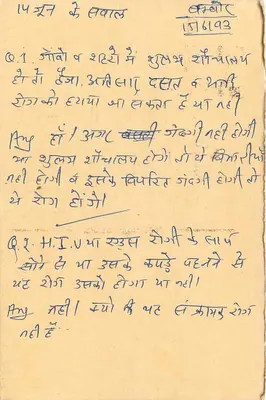 14 जून के सवाल
15/6/93
Q.1. गाँवो व शहरो में शुलभ शौचालय
हो तो हैजा, अतिसार, दसत व
रोग को हटाया जा सकता है या नहीं
Ans हाँ! अगर गंदगी नहीं होगी
या शुलभ शौचालय होगे तो ये बिमारीया
नहीं होगी व इसके विपरित गंदगी होगी तो
ये रोग होंगे।
Q.2. H.I.V या एड्स रोगी के साथ
सोने से या उसके कपड़े पहनने से
यह रोग उसको होगा या नहीं।
Ans नहीं! क्यो कि यह संक्रामक रोग
नहीं है